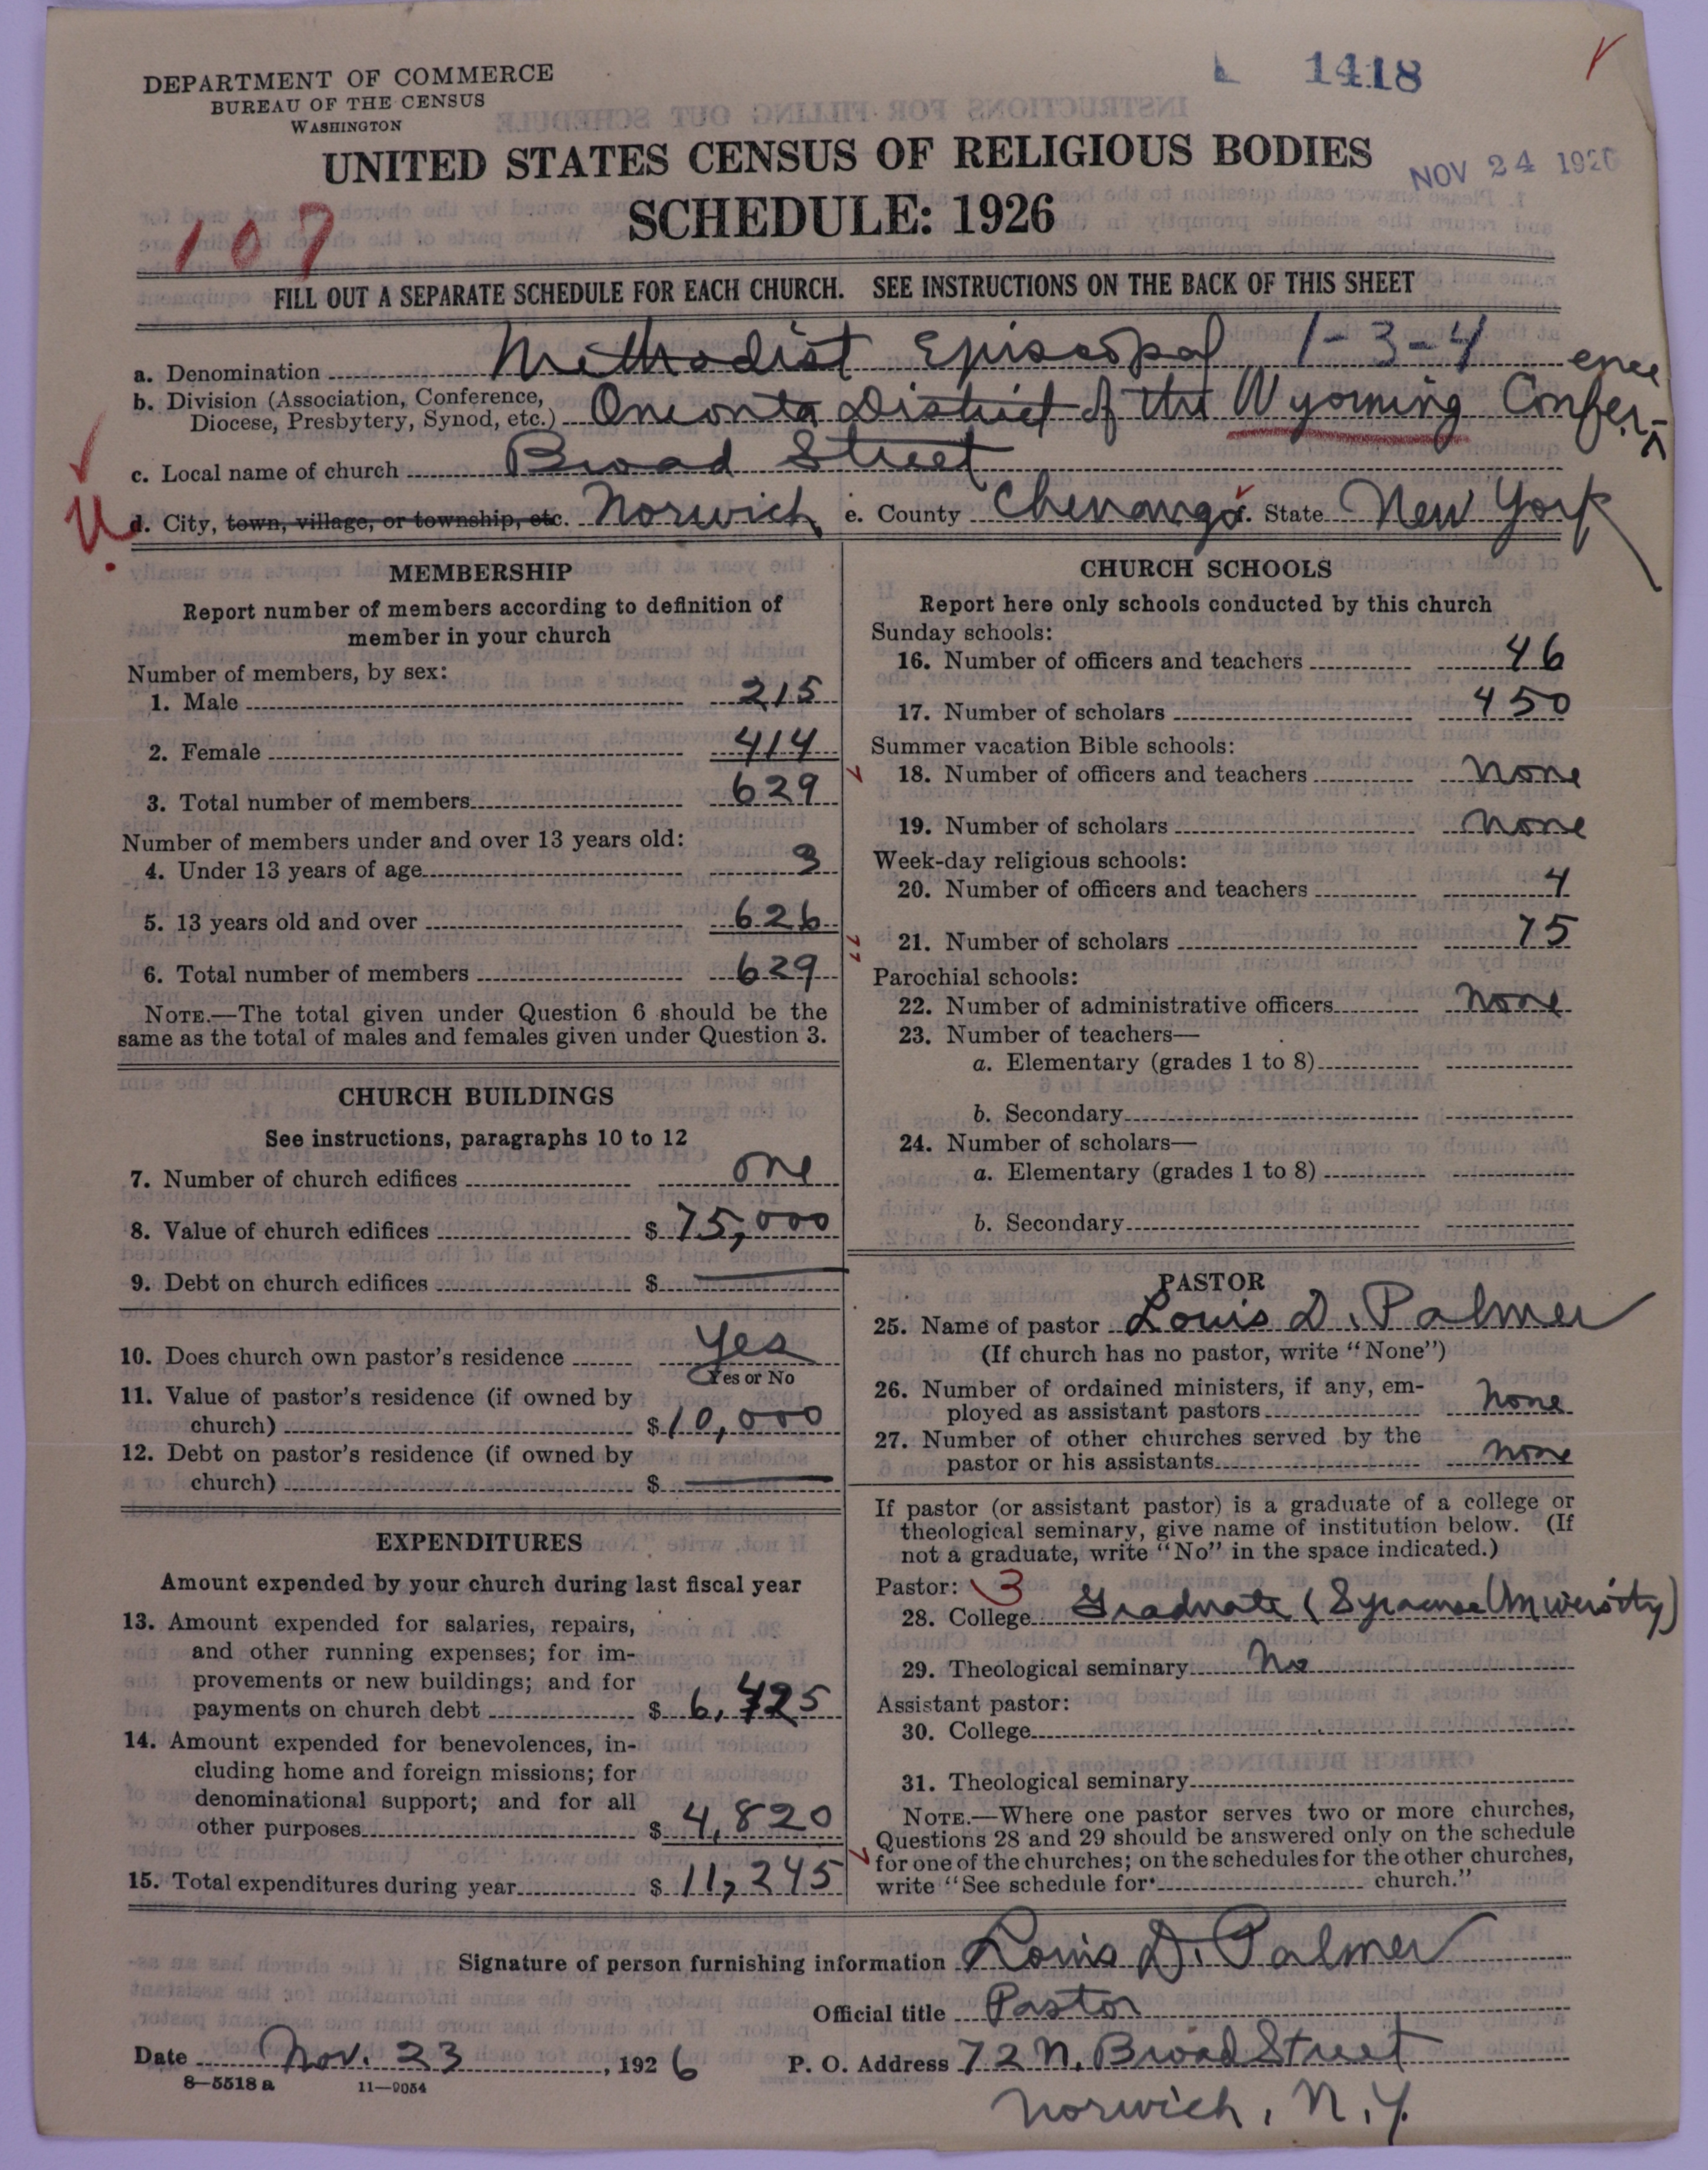 DEPARTMENT OF COMMERCE
BUREAU OF THE CENSUS
WASHINGTON
1418
UNITED STATES CENSUS OF RELIGIOUS BODIES
NOV 24 1926
SCHEDULE: 1926
107
FILL OUT A SEPARATE SCHEDULE FOR EACH CHURCH. SEE INSTRUCTIONS ON THE BACK OF THIS SHEET
a. Denomination Methodist Episcopal 1-3-4
b. Division (Association, Conference, Diocese, Presbytery, Synod, etc.) Oneonta District of the Wyoming Conference
c. Local name of church Broad Street
d. City, town, village, or township, etc. Norwich e. County Chenango f. State New York
MEMBERSHIP
Report number of members according to definition of
member in your church
Number of members, by sex:
1. Male 215
2. Female 414
3. Total number of members 629
Number of members under and over 13 years old:
4. Under 13 years of age 3
5. 13 years old and over 626
6. Total number of members 629
NOTE.—The total given under Question 6 should be the
same as the total of males and females given under Question 3.
CHURCH BUILDINGS
See instructions, paragraphs 10 to 12
7. Number of church edifices one
8. Value of church edifices $ 75,000
9. Debt on church edifices $ —
10. Does church own pastor's residence Yes
Yes or No
11. Value of pastor's residence (if owned by
church) $ 10,000
12. Debt on pastor's residence (if owned by
church) $ —
EXPENDITURES
Amount expended by your church during last fiscal year
13. Amount expended for salaries, repairs,
and other running expenses; for im-
provements or new buildings; and for
payments on church debt $ 6,425
14. Amount expended for benevolences, in-
cluding home and foreign missions; for
denominational support; and for all
other purposes $ 4,820
15. Total expenditures during year $ 11,245
CHURCH SCHOOLS
Report here only schools conducted by this church
Sunday schools:
16. Number of officers and teachers 46
17. Number of scholars 450
Summer vacation Bible schools:
18. Number of officers and teachers None
19. Number of scholars None
Week-day religious schools:
20. Number of officers and teachers 4
21. Number of scholars 75
Parochial schools:
22. Number of administrative officers None
23. Number of teachers—
a. Elementary (grades 1 to 8)
b. Secondary
24. Number of scholars—
a. Elementary (grades 1 to 8)
b. Secondary
PASTOR
25. Name of pastor Louis D. Palmer
(If church has no pastor, write "None")
26. Number of ordained ministers, if any, em-
ployed as assistant pastors None
27. Number of other churches served by the
pastor or his assistants None
If pastor (or assistant pastor) is a graduate of a college or
theological seminary, give name of institution below. (If
not a graduate, write "No" in the space indicated.)
Pastor: 3
28. College Graduate (Syracuse University)
29. Theological seminary No
Assistant pastor:
30. College
31. Theological seminary
NOTE.—Where one pastor serves two or more churches,
Questions 28 and 29 should be answered only on the schedule
for one of the churches; on the schedules for the other churches,
write "See schedule for church."
Signature of person furnishing information Louis D. Palmer
Official title Pastor
Date Nov. 23, 1926 P. O. Address 72 N. Broad Street
8—5518 a 11—9054
Norwich, N.Y.